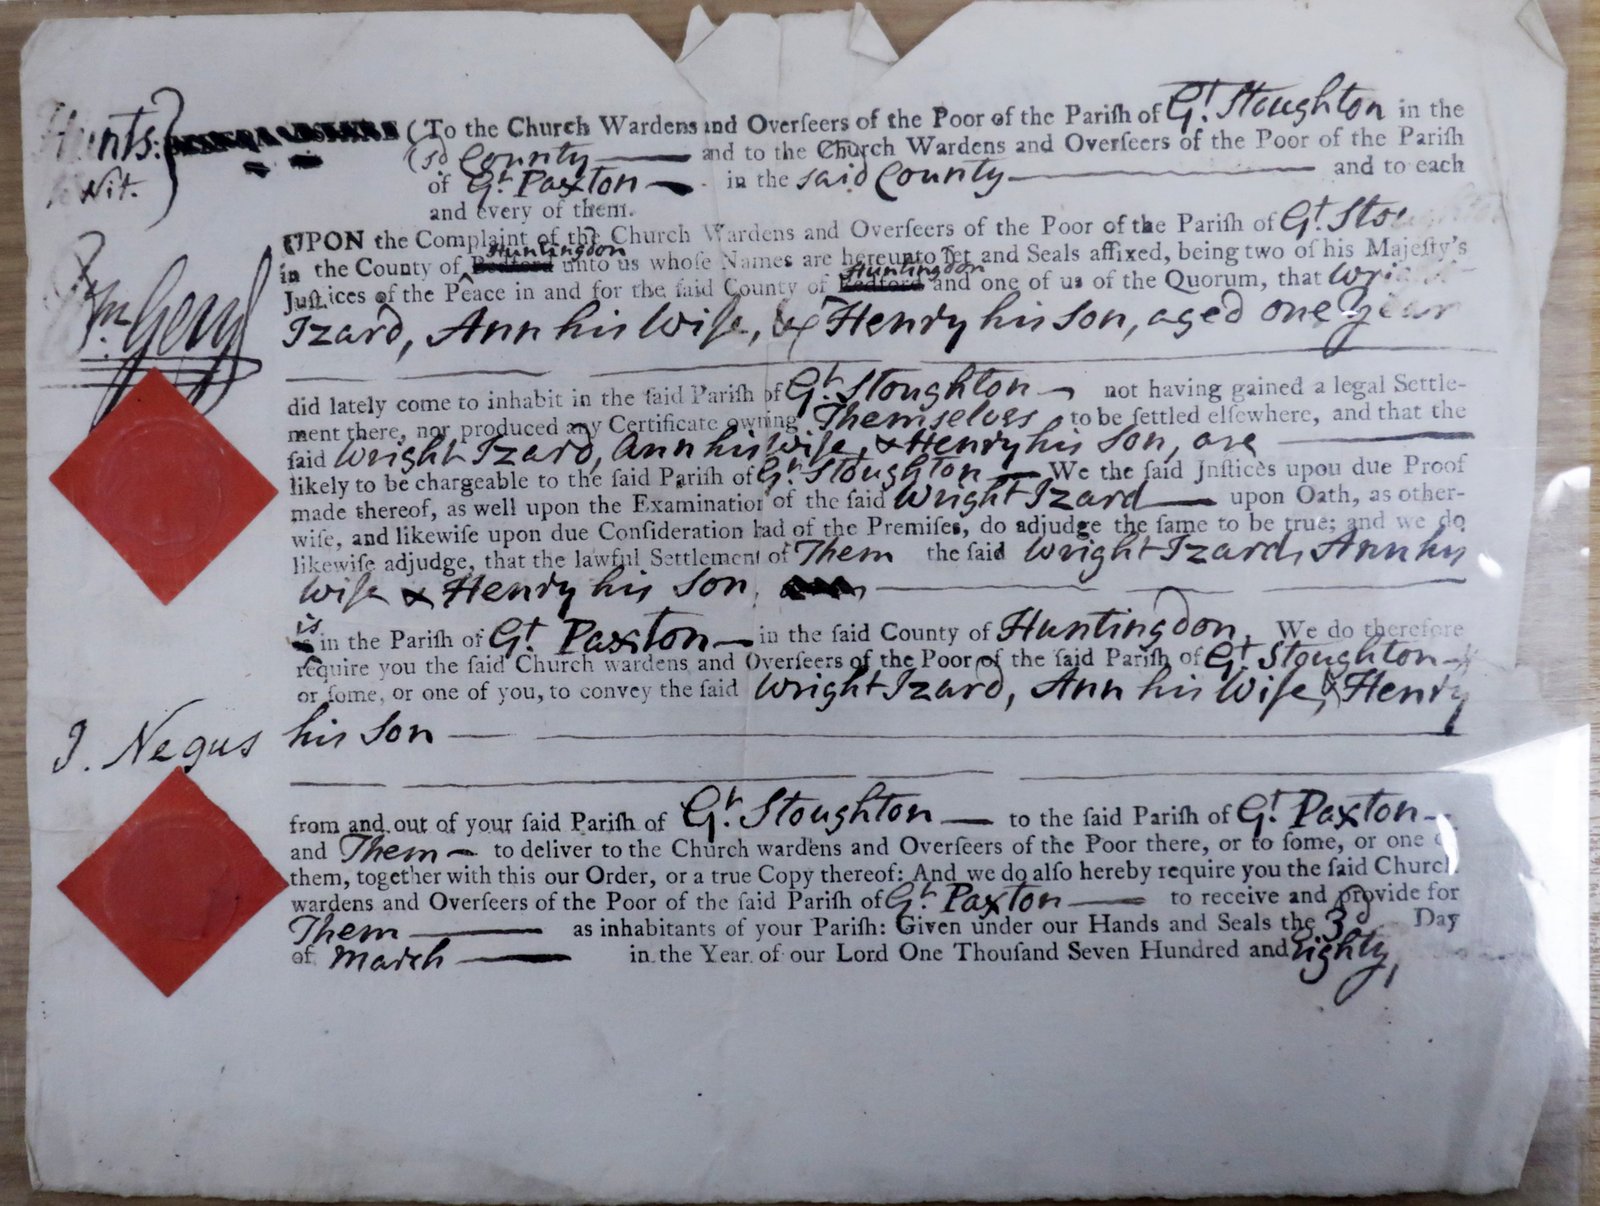 Hunts: To the Church Wardens and Overſeers of the Poor of the Pariſh of Gt. Stoughton in the
to Wit. sd County and to the Church Wardens and Overſeers of the Poor of the Pariſh
of Gt. Paxton in the said County and to each
and every of them.
UPON the Complaint of the Church Wardens and Overſeers of the Poor of the Pariſh of Gt. Stoughton
in the County of Bedford Huntingdon unto us whoſe Names are hereunto ſet and Seals affixed, being two of his Majeſty's
Juſtices of the Peace in and for the ſaid County of Bedford Huntingdon and one of us of the Quorum, that Wright
Izard, Ann his Wife, & Henry his Son, aged one Year
did lately come to inhabit in the ſaid Pariſh of Gt. Stoughton not having gained a legal Settle-
ment there, nor produced any Certificate owning Themselves to be ſettled elſewhere, and that the
ſaid Wright Izard, Ann his Wife, & Henry his Son, are
likely to be chargeable to the ſaid Pariſh of Gt. Stoughton We the ſaid Jnſtices upou due Proof
made thereof, as well upon the Examination of the ſaid Wright Izard upon Oath, as other-
wiſe, and likewiſe upon due Conſideration had of the Premiſes, do adjudge the ſame to be true; and we do
likewiſe adjudge, that the lawful Settlement of Them the ſaid Wright Izard, Ann his
Wife & Henry his Son,
is in the Pariſh of Gt. Paxton in the ſaid County of Huntingdon, We do therefore
require you the ſaid Church wardens and Overſeers of the Poor of the ſaid Pariſh of Gt. Stoughton
or ſome, or one of you, to convey the ſaid Wright Izard, Ann his Wife, & Henry
J. Negus
his Son
from and out of your ſaid Pariſh of Gt. Stoughton to the ſaid Pariſh of Gt. Paxton
and Them to deliver to the Church wardens and Overſeers of the Poor there, or to ſome, or one of
them, together with this our Order, or a true Copy thereof: And we do alſo hereby require you the ſaid Church
wardens and Overſeers of the Poor of the ſaid Pariſh of Gt. Paxton to receive and provide for
Them as inhabitants of your Pariſh: Given under our Hands and Seals the 3d Day
of March in the Year of our Lord One Thouſand Seven Hundred and Eighty,